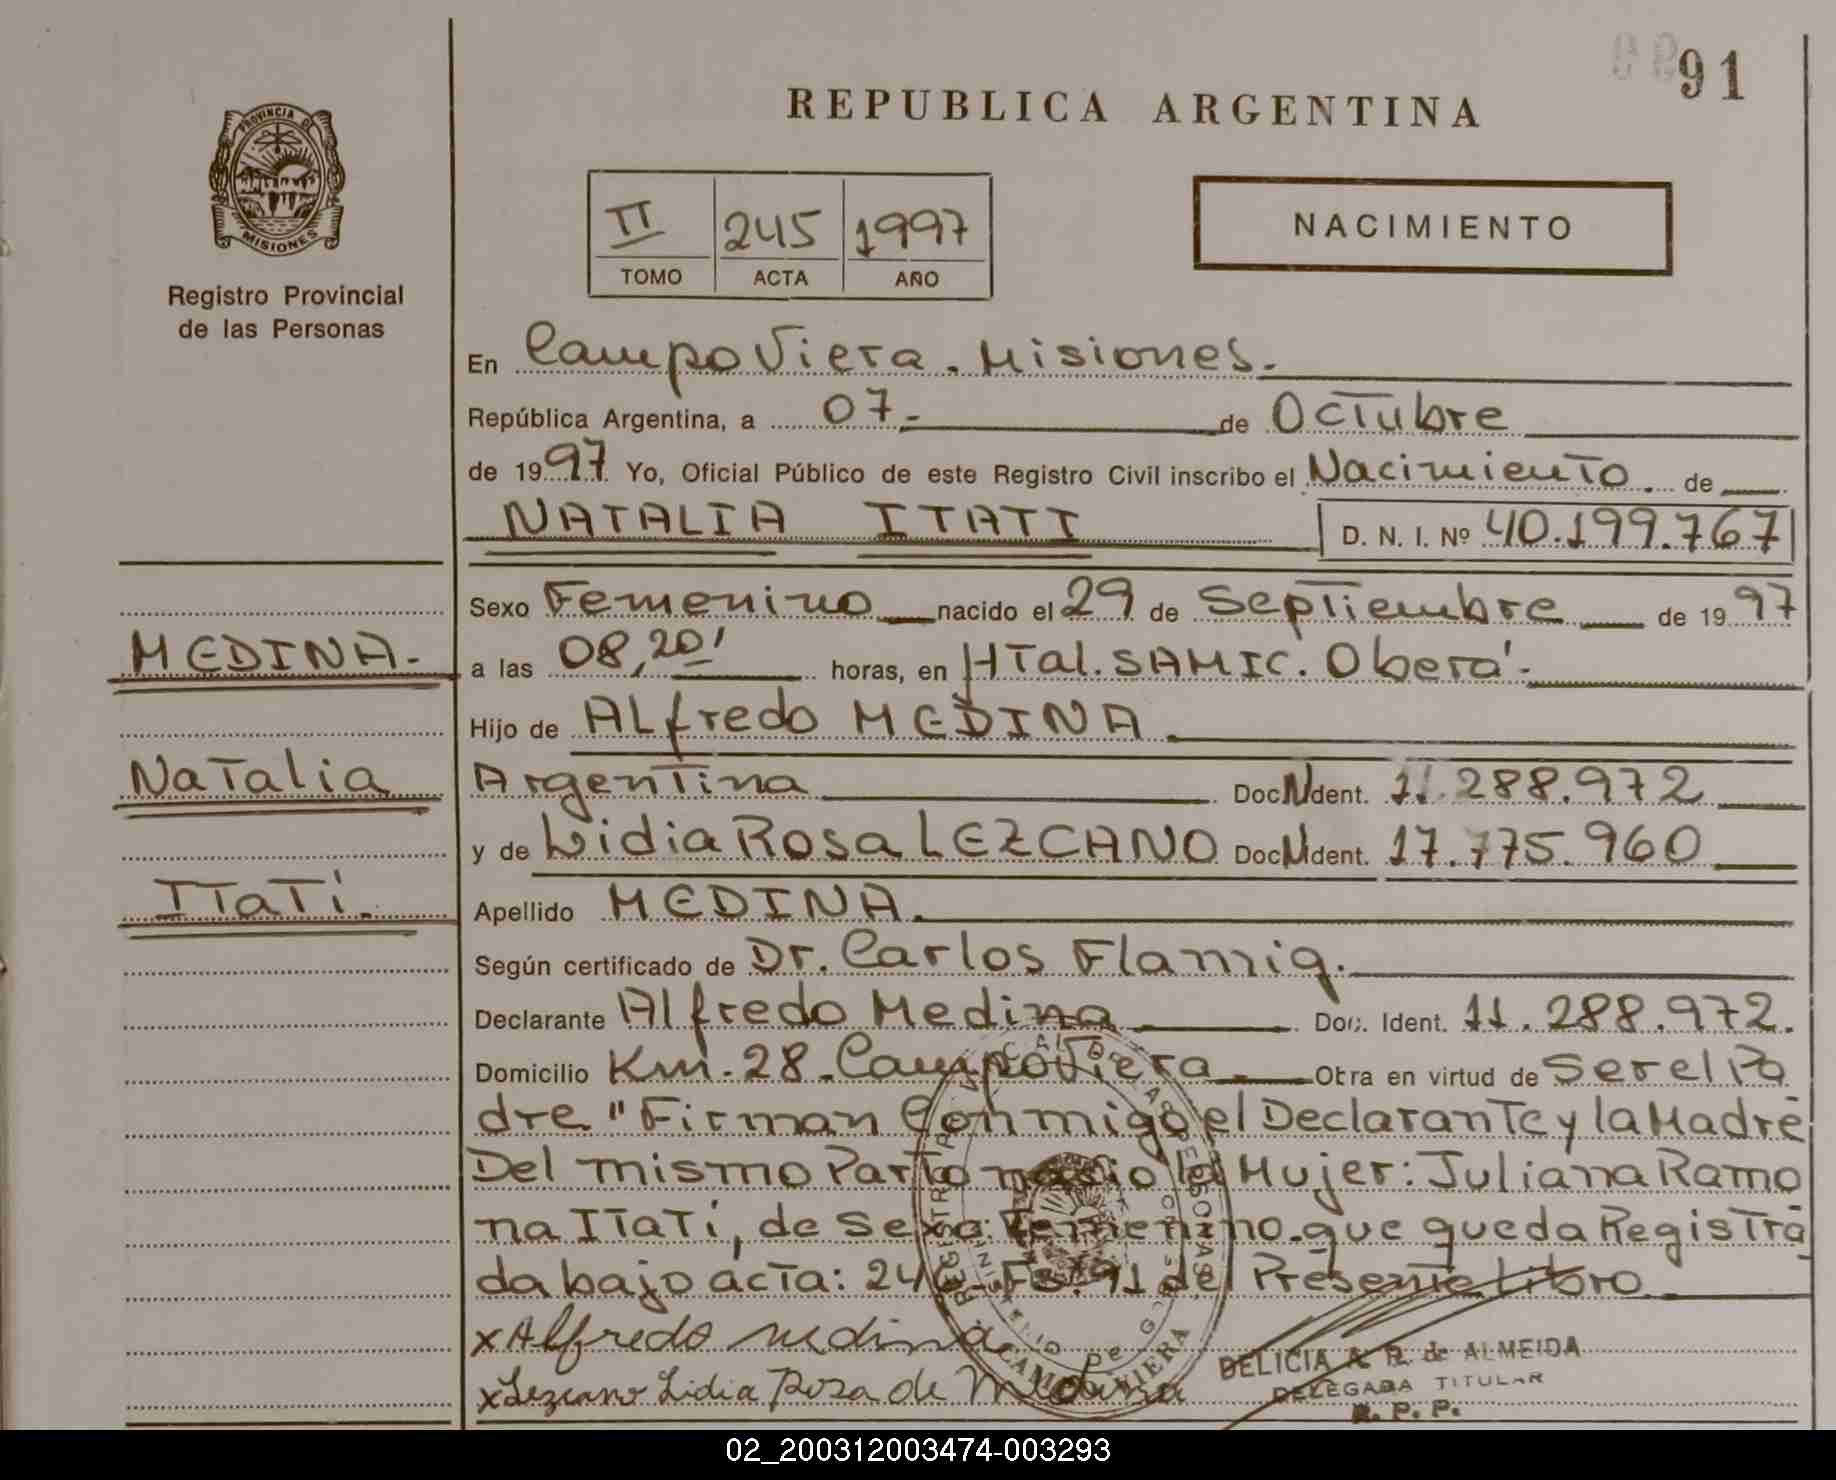 91
REPUBLICA ARGENTINA
PROVINCIA DE
MISIONES
Registro Provincial
de las Personas
II 245 1997
TOMO ACTA AÑO
NACIMIENTO
En Campo Viera. Misiones.-
República Argentina, a 07.- de Octubre
de 1997 Yo, Oficial Público de este Registro Civil inscribo el Nacimiento. de
NATALIA ITATI D. N. I. Nº 40.199.767
Sexo Femenino nacido el 29 de Septiembre de 1997
MEDINA.-
a las 08,20' horas, en HTal. SAMIC. Oberá.-
Hijo de ALfredo MEDINA
Natalia
Argentina Doc N Ident. 11.288.972
y de Lidia Rosa LEZCANO Doc N Ident. 17.775.960
ITaTí.
Apellido MEDINA.
Según certificado de Dr. Carlos Flamig.
Declarante Alfredo Medina Doc. Ident. 11.288.972.
Domicilio Km. 28. Campo Viera Obra en virtud de Ser el Pa
dre " Firman Conmigo el Declarante y la Madre
Del mismo Parto nacio la Mujer: Juliana Ramo
na ITaTí, de Sexo: Femenino. que queda Registra
da bajo acta: 246. Fs: 91 del Presente Libro
x Alfredo medina
x Lezcano Lidia Rosa de Medina
DELICIA A. R. de ALMEIDA
DELEGADA TITULAR
R. P. P.
CAMPO VIERA
02_200312003474-003293